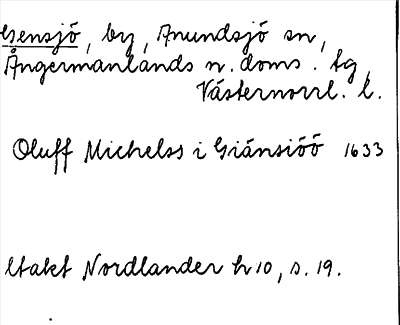 Gensjö, by, Anundsjö sn,
Ångermanlands n. doms. tg,
Västernorrl. l.
Oluff Michelss i Giänsiöö 1633
Utakt Nordlander h 10, s. 19.